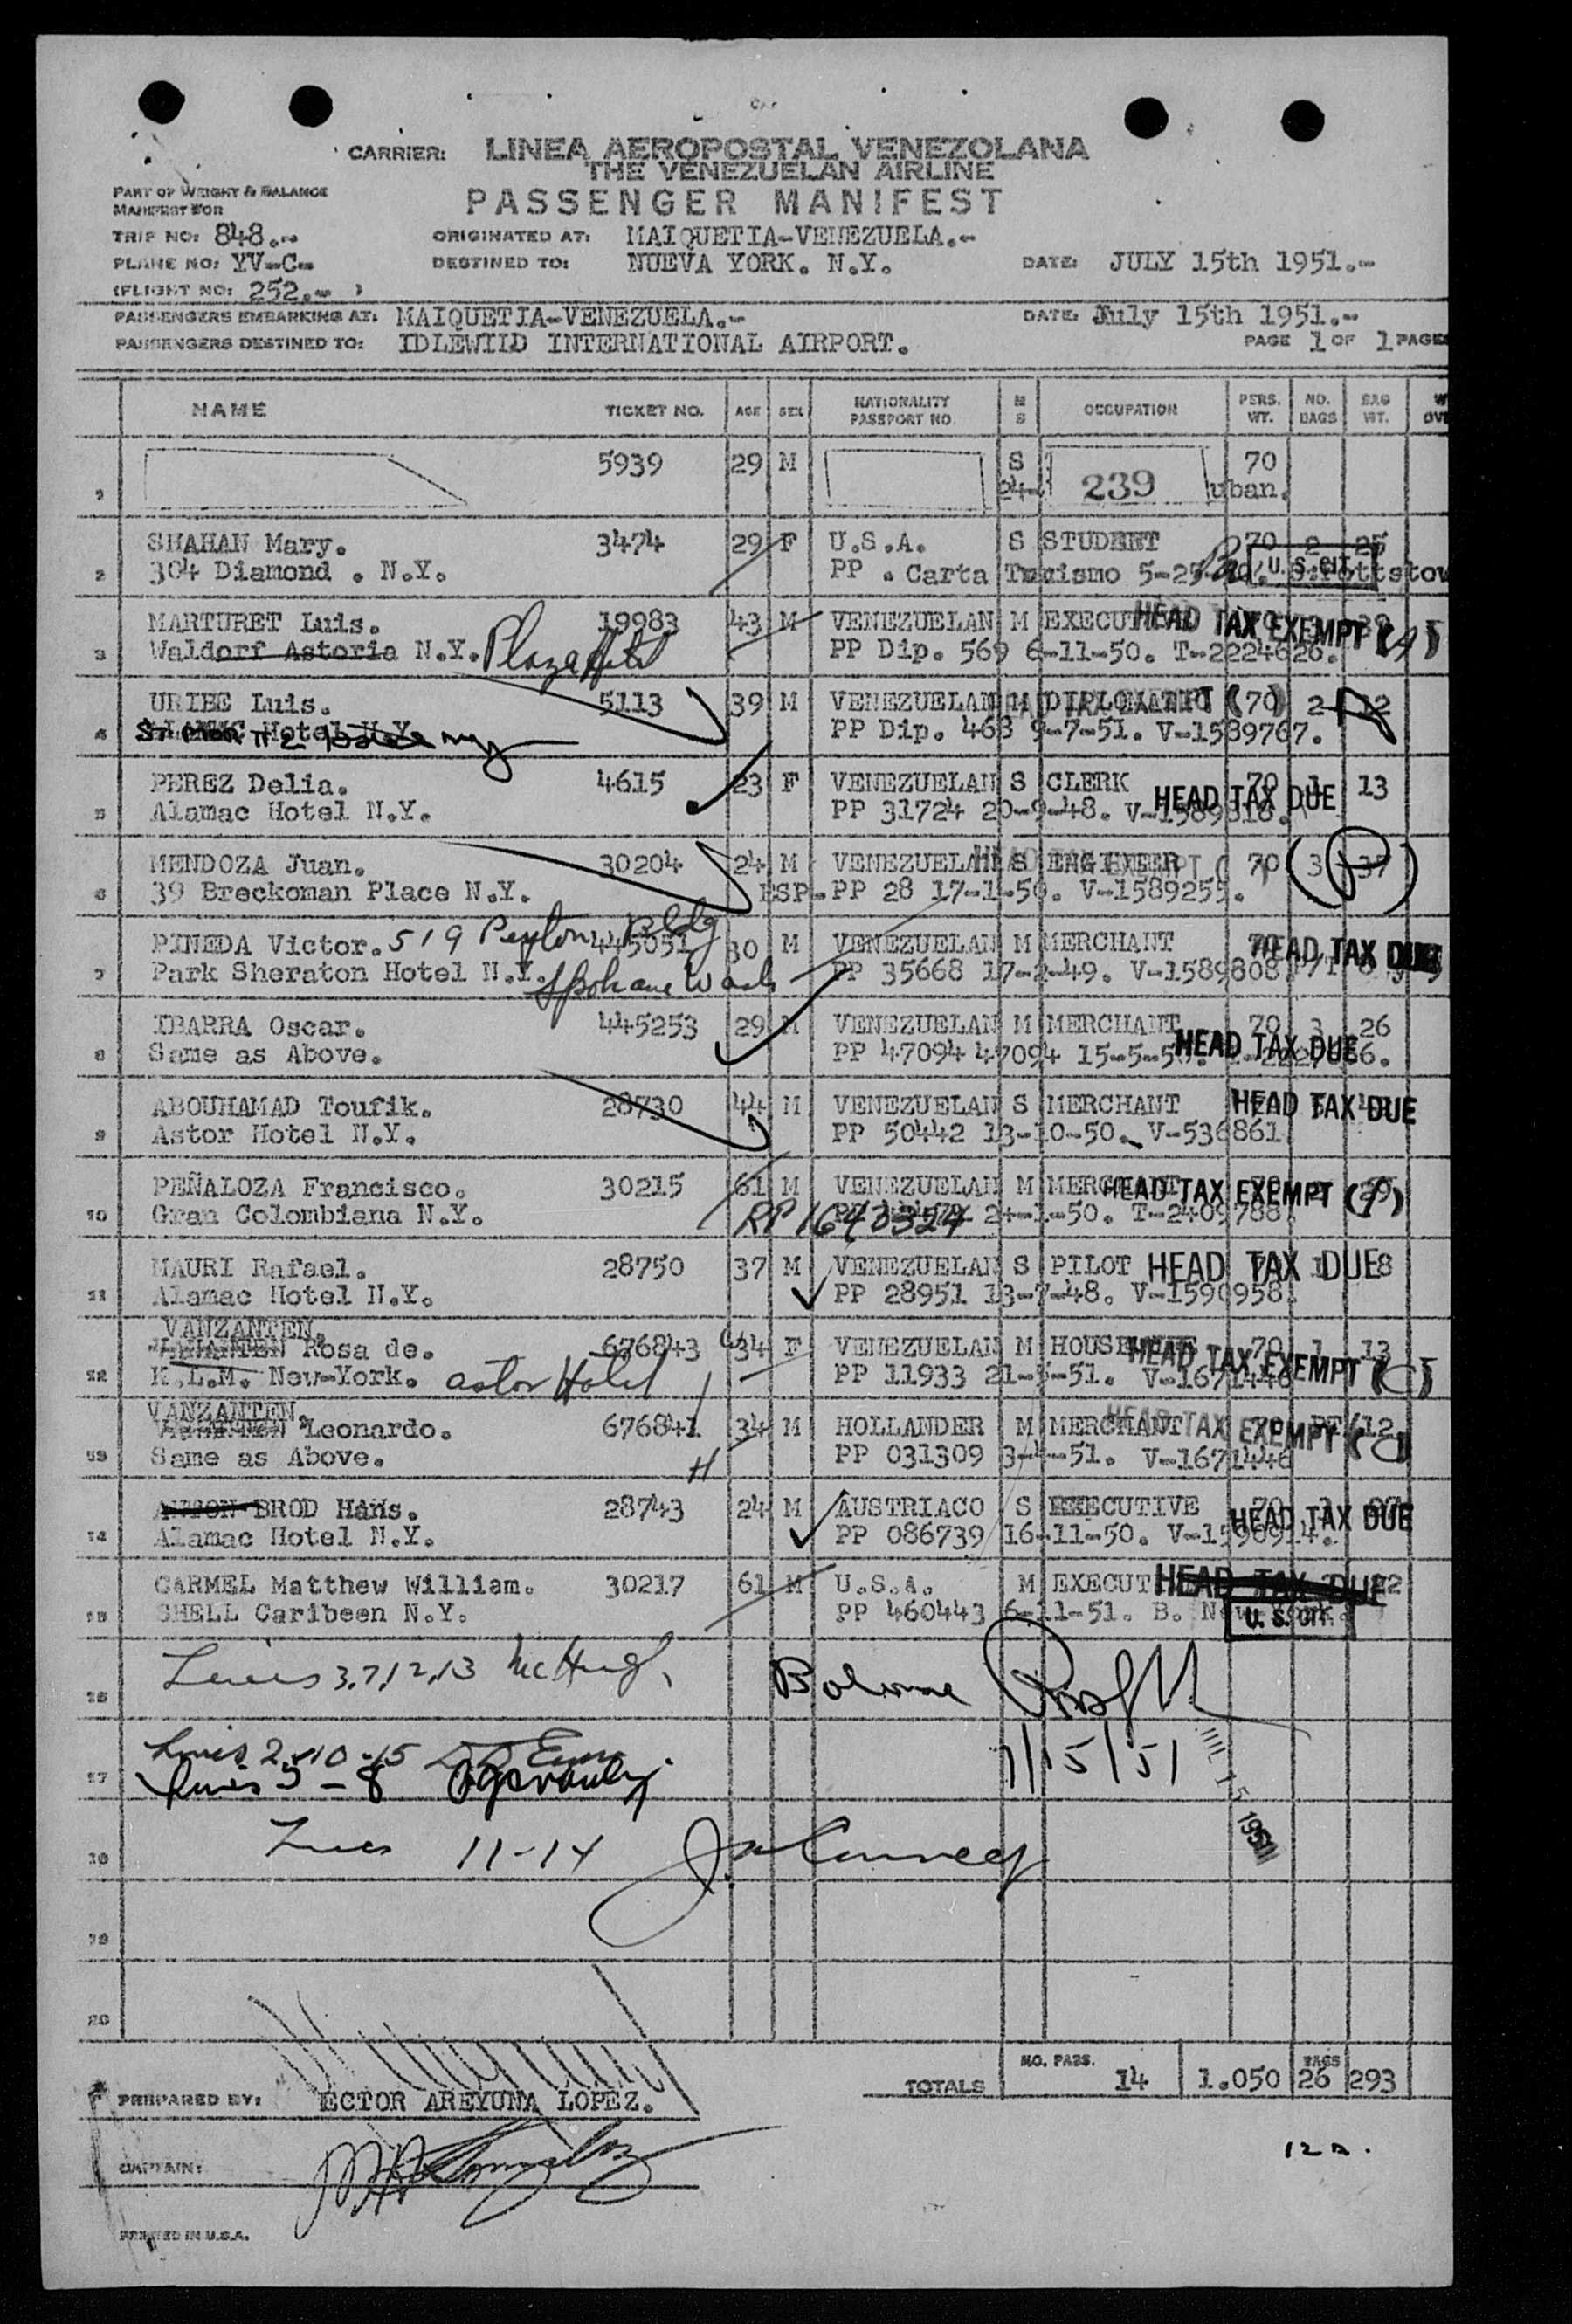 CARRIER: LINEA AEROPOSTAL VENEZOLANA
THE VENEZUELAN AIRLINE
PASSENGER MANIFEST
PART OF WEIGHT & BALANCE
MANIFEST FOR
TRIP NO: 848.-- ORIGINATED AT: MAIQUETIA-VENEZUELA.-
PLANE NO: YV-C- DESTINED TO: NUEVA YORK. N.Y. DATE: JULY 15th 1951.--
(FLIGHT NO: 252.- )
PASSENGERS EMBARKING AT: MAIQUETIA-VENEZUELA.- DATE: July 15th 1951.--
PASSENGERS DESTINED TO: IDLEWIID INTERNATIONAL AIRPORT. PAGE 1 OF 1 PAGES
NAME TICKET NO. AGE SEX NATIONALITY PASSPORT NO M S OCCUPATION PERS. WT. NO. BAGS BAG WT. W OVE
5939 29 M S 70
1 24- 239 uban.
SHAHAN Mary. 3474 29 F U.S.A. S STUDENT 70 2 25
2 304 Diamond . N.Y. PP . Carta Turismo 5-25- U. S. CIT. Pottstow
MARTURET Luis. 19983 43 M VENEZUELAN M EXECUT HEAD TAX EXEMPT (A)
3 Waldorf Astoria N.Y. Plaza Hotel PP Dip. 569 6-11-50. T-2224626.
URIBE Luis. 5113 39 M VENEZUELAN M DIPLOMATIC 70 2 12
4 Hotel N.Y. PP Dip. 463 9-7-51. V-1589767.
PEREZ Delia. 4615 23 F VENEZUELAN S CLERK 70 1 13
5 Alamac Hotel N.Y. PP 31724 20-9-48. V-1589818. HEAD TAX DUE
MENDOZA Juan. 30204 24 M VENEZUELAN S ENGINEER 70 3 37
6 39 Breckoman Place N.Y. ESP. PP 28 17-1-50. V-1589255.
PINEDA Victor. 519 Peyton Bldg 445051 30 M VENEZUELAN M MERCHANT 70 HEAD TAX DUE
7 Park Sheraton Hotel N.Y. Spokane Wash PP 35668 17-2-49. V-1589808
IBARRA Oscar. 445253 29 M VENEZUELAN M MERCHANT 70 3 26
8 Same as Above. PP 47094 47094 15-5-50. HEAD TAX DUE
ABOUHAMAD Toufik. 28730 44 M VENEZUELAN S MERCHANT HEAD TAX DUE
9 Astor Hotel N.Y. PP 50442 13-10-50. V-536861
PEÑALOZA Francisco. 30215 61 M VENEZUELAN M MERCHANT HEAD TAX EXEMPT
10 Gran Colombiana N.Y. RP 1643324 24-1-50. T-2409788
MAURI Rafael. 28750 37 M VENEZUELAN S PILOT HEAD TAX DUE 8
11 Alamac Hotel N.Y. PP 28951 13-7-48. V-1590958
VANZANTEN.
Rosa de. 676843 34 F VENEZUELAN M HOUSEWIFE 70 1 13
12 K.L.M. New-York. Astor Hotel PP 11933 21-5-51. V-1671446 HEAD TAX EXEMPT (C)
VANZANTEN.
Leonardo. 676841 34 M HOLLANDER M MERCHANT 70 PT/12
13 Same as Above. H PP 031309 3-4-51. V-1671446 HEAD TAX EXEMPT (C)
BROD Hans. 28743 24 M AUSTRIACO S EXECUTIVE 70 1 27
14 Alamac Hotel N.Y. PP 086739 16-11-50. HEAD TAX DUE
CARMEL Matthew William. 30217 61 M U.S.A. M EXECUT HEAD TAX DUE 22
15 SHELL Caribeen N.Y. PP 460443 6-11-51. B. New York. U. S. CIT.
16 Lines 3,7,12,13 McHugh
Lines 2-10-15
17 Lines 5-8 7/15/51 JUL 15 1951
18 Lines 11-14
19
20
TOTALS NO. PASS. 14 1.050 BAGS 26 293
PREPARED BY: ECTOR AREYUNA LOPEZ.
12 a.
CAPTAIN:
PRINTED IN U.S.A.